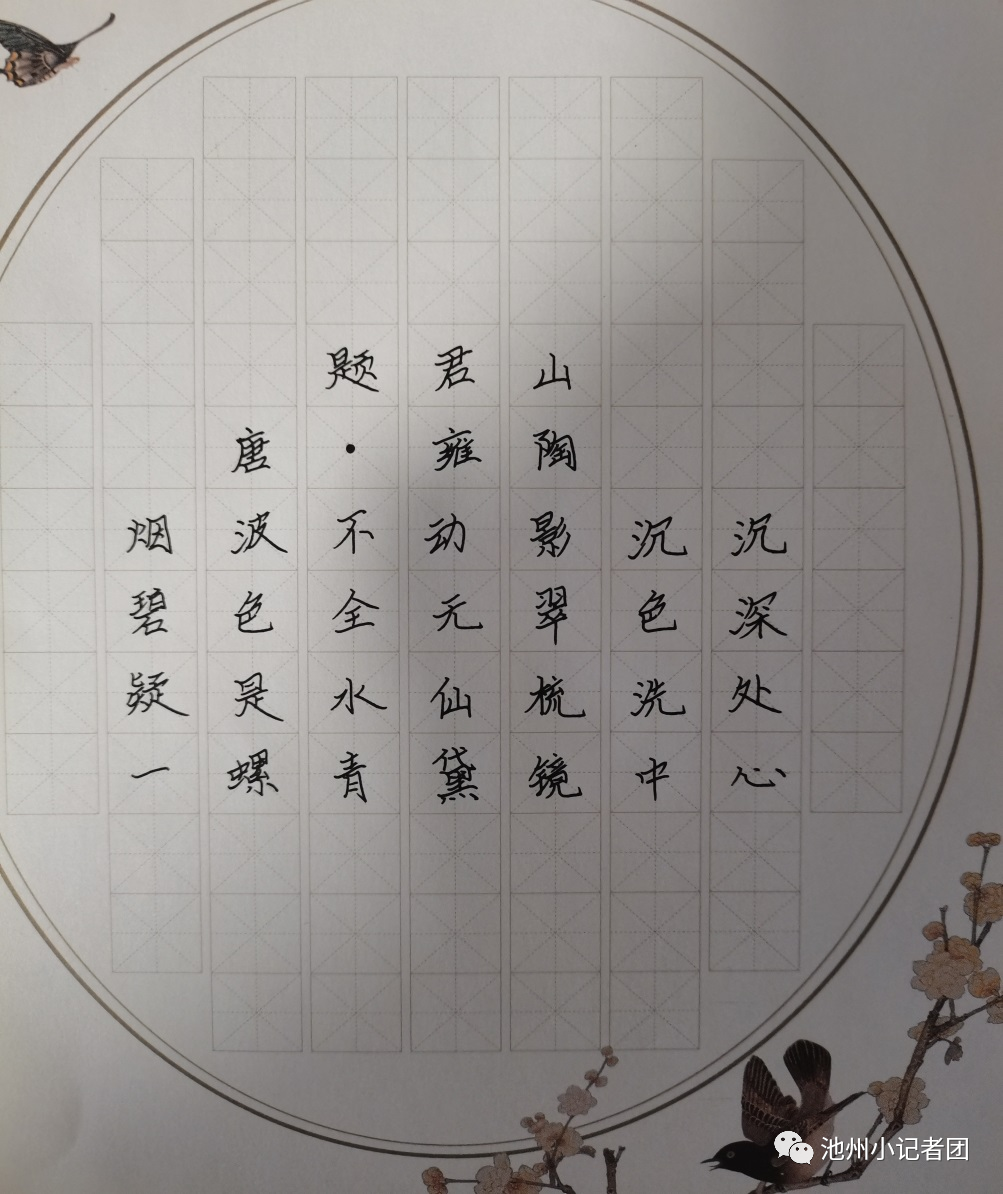 题君山
唐·雍陶
烟波不动影沉沉
碧色全无翠色深
疑是水仙梳洗处
一螺青黛镜中心
池州小记者团